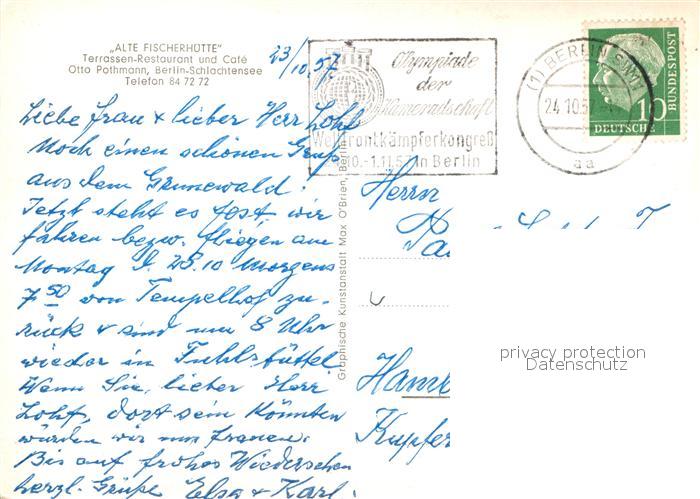 „ALTE FISCHERHÜTTE"
Terrassen-Restaurant und Café
Otto Pothmann, Berlin-Schlachtensee
Telefon 84 72 72
23/10.57.
Liebe Frau & lieber Herr Lohf
Noch einen schönen Gruß
aus dem Grunewald!
Jetzt steht es fest, wir
fahren bezw. fliegen am
Montag d. 28.10 Morgens
7 50 von Tempelhof zu-
rück & sind um 8 Uhr
wieder in Fuhlsbüttel
Wenn Sie, lieber Herr
Lohf, dort sein könnten
würden wir uns freuen.
Bis auf frohes Wiedersehen
herzl. Grüße Elsa & Karl.
Graphische Kunstanstalt Max O'Brien, Berlin
Olympiade
der
Kameradschaft
Weltfrontkämpferkongreß
10.-1.11.57 in Berlin
(1) BERLIN SW11
24.10.57
aa
10
DEUTSCHE
BUNDESPOST
Herrn
Kupfer
privacy protection
Datenschutz